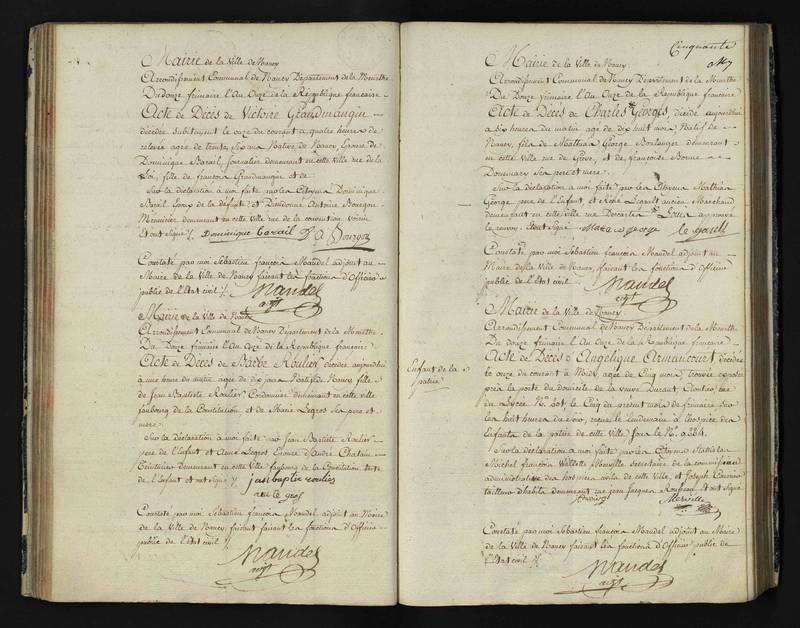 Mairie de la Ville de Nancy
Arrondissement Communal de Nancy Département de la Meurthe
Du Douze frimaire l'An Onze de la République française
Acte de Décès de Victoire Grandmangin
décédée subitement le onze du courant a quatre heures de
relevée agée de trente six ans Native de Nancy, Epouse de
Dominique Barail, Journalier demeurant en cette ville rue de la
Loi, fille de françois Grandmangin et de
Sur la déclaration à moi faite par les Citoyens Dominique
Barail Epoux de la défunte et Dieudonné Antoine Bourgon
Menuisier demeurant en cette Ville rue de la convention, voisin
Et ont signé /. Dominique barail D. A. Bourgon
Constaté par moi Sébastien françois Mandel adjoint au
Maire de la Ville de Nancy faisant les fonctions d'Officier
public de l'Etat civil /.
Mandel
adjt
Mairie de la Ville de Nancy
Arrondissement Communal de Nancy Département de la Meurthe
Du Douze frimaire l'An Onze de la République française
Acte de Décès de Barbe Roulier décédée aujourdhui
à une heure du matin agée de dix ans Native de Nancy fille
de Jean Baptiste Roulier Cordonnier demeurant en cette ville
faubourg de la Constitution et de Marie Legros ses pere et
mere.
Sur la Déclaration à moi faite par Jean Baptiste Roulier
pere de l'Enfant et Anne Legros, Epouse d'André Chatain
demeurant en cette Ville faubourg de la Constitution tante
de l'Enfant et ont signé /.
Constaté par moi Sébastien françois Mandel adjoint au Maire
de la Ville de Nancy faisant faisant les fonctions d'Officier
public de l'Etat civil /.
Mandel
adjt
Cinquante
Mairie de la Ville de Nancy
Arrondissement Communal de Nancy Département de la Meurthe
Du Douze frimaire l'An Onze de la République française
Acte de Décès de Charles Georges, décédé aujourdhui
a six heures du matin agé de dix huit mois Natif de
Nancy, fils de Mathias George Boulanger demeurant
en cette Ville rue de Grève, et de françoise Bonne
ses pere et mere.
Sur la déclaration à moi faite par les Citoyens Mathias
George, pere de l'Enfant, et ancien Marchand
demeurant en cette ville rue Descartes approuvé
le renvoi. Et ont signé george le gault
Constaté par moi Sébastien françois Mandel adjoint au
Maire de la Ville de Nancy, faisant les fonctions d'Officier
public de l'Etat civil
Mandel
adjt
Mairie de la Ville de Nancy
Arrondissement Communal de Nancy Département de la Meurthe
Du Douze frimaire l'An Onze de la République française
Enfant de la
patrie
Acte de Décès d'Angelique Armancourt décédée
le onze du courant à Midi, agée de Cinq mois, trouvée exposée
près la porte du domicile de la veuve Durant,
du Lycée No. 207 le Cinq du présent mois de frimaire sur
les huit heures du soir, reçue le lendemain à l'hospice des
Enfants de la patrie de cette Ville sous le No. 9284.
Sur la déclaration à moi faite par les Citoyens Stanislas
Michel françois secrétaire de la commission
administrative des hospices civils de cette Ville, et Joseph
tailleur d'habits demeurant rue jean jacques Rousseau Et ont signé
Constaté par moi Sébastien françois Mandel adjoint au Maire
de la Ville de Nancy faisant les fonctions d'Officier public de
l'Etat civil /.
Mandel
adjt